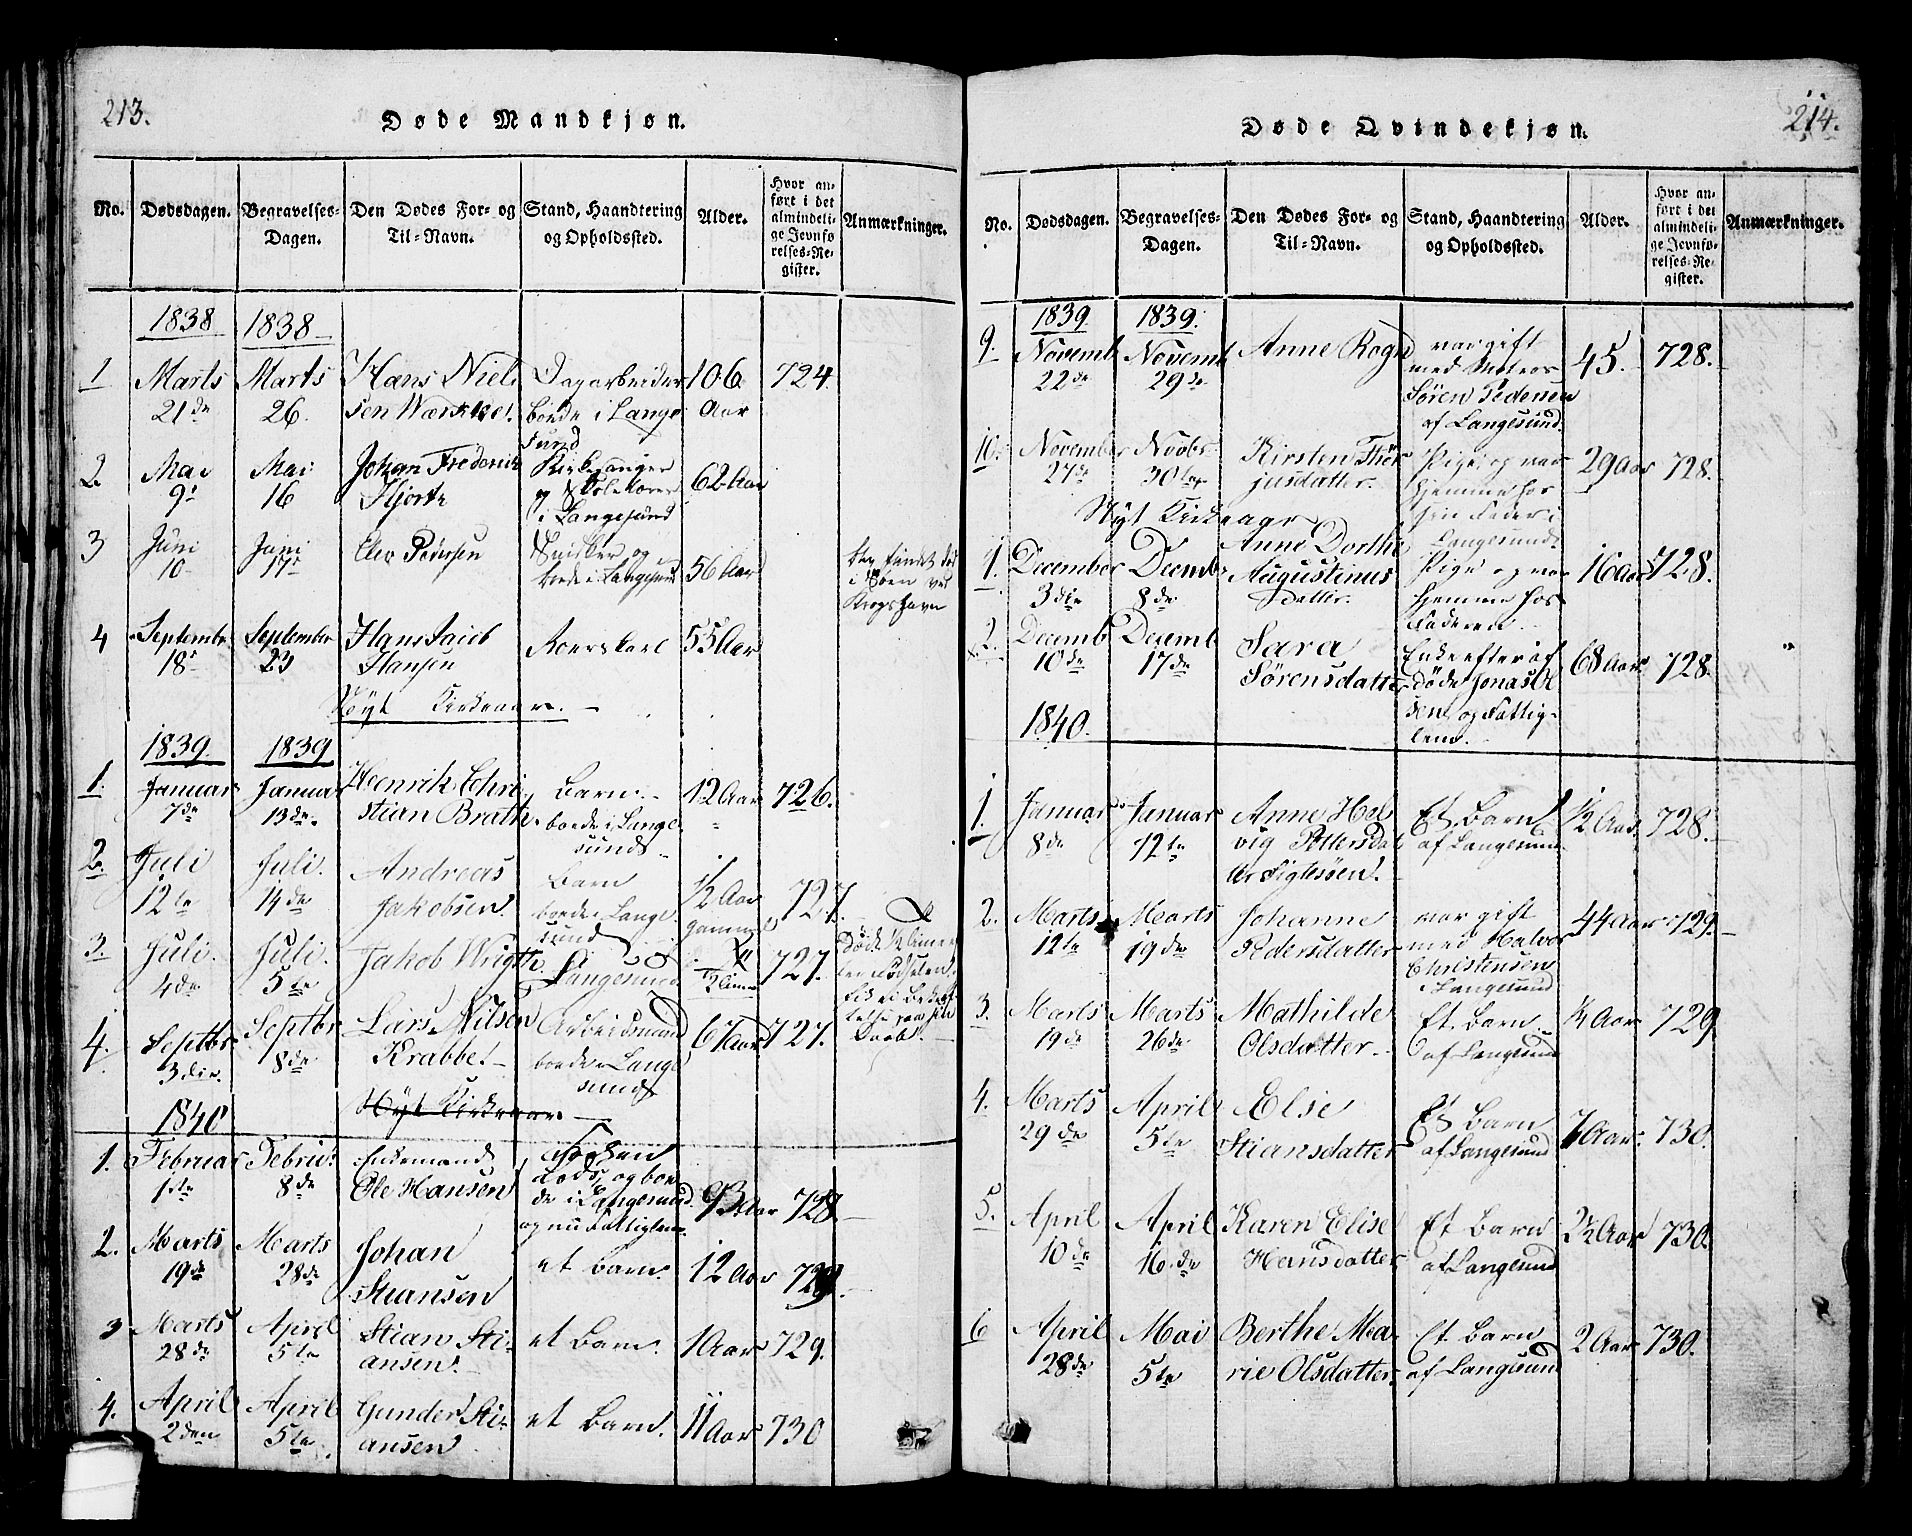 213.
Døde Mandkjøn.
No. Dødsdagen. Begravelses-Dagen. Den Dødes For- og Til-Navn. Stand, Haandtering og Opholdssted. Alder. Hvor anført i det almindelige Jevnførelses-Register. Anmærkninger.
1838 1838
1 Marts 21de Marts 26. Hans Nielsen Dagarbeider boede i Langesund 106 Aar 724.
2. Mai 9de Mai 16 Johan Frederick Hjorte Kirkesanger og Skolelærer i Langesund 62 Aar
3 Juni 10 Juni 17 Elev Pedersen Snisker og boede i Langesund 56 Aar
4 Septembr 18 September 23 Hans Jacob Hansen 55 Aar
Nyt Kirkeaar.
1839. 1839
1. Januar 7de Januar 13de Henrik Christian Brath. Barn boede i Langesund 12 Aar 726.
2. Juli 12te Juli 14de Andreas Jakobsen Barn boede i Langesund 1/2 Aar gammel 727.
3. Juli. 4de Juli. 5te Jakob Wrigth Langesund 727.
4. Septbr 3die. Septbr 8de Lars Nilsen Krabbe Arbeidsmand boede i Langesund 67 Aar 727.
1840 Nyt Kirkeaar
1. Februar 1ste Februr 8de Enkemand Ole Hansen Lods, og boede i Langesund og nu Fattiglem 93 Aar 728.
2. Marts 19de Marts 28de Johan Stiansen et barn. 12 Aar 729.
3 Marts 28de April 5te Stian Stiansen. et Barn. 1 Aar 729.
4. April 2den April 5te Gunder Stiansen et Barn. 11 Aar 730
214.
Døde Qvindekjøn.
No. Dødsdagen. Begravelses-Dagen. Den Dødes For- og Til-Navn. Stand, Haandtering og Opholdssted. Alder. Hvor anført i det almindelige Jevnførelses-Register. Anmærkninger.
1839 1839.
9. Novemb 22de Novemb 29de Anne Rogn var gift med Matros Søren Pedersen af Langesund. 45. 728.
10. November 27de Novbr 30te Kirsten Thorjusdatter Pige og var hjemme hos sin Fader i Langesund. 29 Aar 728.
Nyt Kirkeaar
1. December 3die Decembr 8de Anne Dorthe Augustinusdatter. Pige og var hjemme hos Faderen 16 Aar 728.
2. Decemb 10de Decemb 17de Sara Sørensdatter Enke efter afdøde Jonas Olsen, og Fattiglem. 68 Aar 728.
1840.
1. Januar 8de Januar 12te Anne Helvig Et Barn af Langesund 1/2 Aar 728.
2. Marts 12te Marts 19de Johanne Pedersdatter var gift med Halvor Christensen i Langesund 44 Aar 729.
3. Marts 19de Marts 26de Mathilde Olsdatter. Et Barn af Langesund 1/2 Aar 729
4. Marts 29de April 5te Else Stiansdatter Et Barn af Langesund 7 Aar. 730.
5. April 10de April 16de Karen Elise Hansdatter Et Barn af Langesund 2 1/2 Aar 730.
6 April 28de Mai 5te Berthe Marie Olsdatter. Et Barn af Langesund 2 Aar 730.